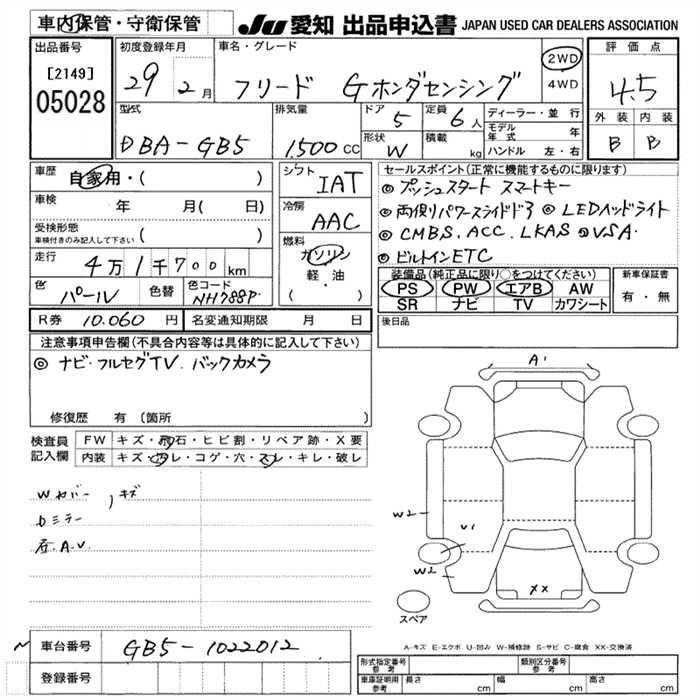 車内保管・守衛保管 JU 愛知 出品申込書 JAPAN USED CAR DEALERS ASSOCIATION
出品番号 初度登録年月 車名・グレード 評価点
[2149]
05028
29年2月 フリード Gホンダセンシング 2WD 4WD 4.5
型式 排気量 ドア 定員 ディーラー・並行 外装 内装
DBA-GB5 1,500CC 5 6人
形状 W 積載 kg
モデル年式 年
ハンドル 左・右
B B
車歴 自家用・( )
シフト IAT
車検 年 月( 日)
冷房 AAC
受検形態
車検付きのみ記入して下さい ( )
燃料 ガソリン 軽・油 ( )
走行 4万1千700km
色 パール 色替 色コード NH788P
R券 10.060円 名変通知期限 月 日
セールスポイント(正常に機能するものに限ります)
◎プッシュスタート スマートキー
◎両側パワースライドドア ◎LEDヘッドライト
◎CMBS.ACC.LKAS ◎VSA
◎ビルトインETC
装備品(純正品に限り○をつけてください) 新車保証書
PS PW エアB AW 有・無
SR ナビ TV カワシート
後日品
注意事項申告欄(不具合内容等は具体的に記入して下さい)
◎ナビ・フルセグTV.バックカメラ
修復歴 有(箇所 )
検査員記入欄 FW キズ・飛石・ヒビ割・リペア跡・X要
内装 キズ・汚レ・コゲ・穴・スレ・キレ・破レ
Wカバー, キズ
Dミラー
A.U.
A1
W2
U1
W2
XX
スペア
A-キズ E-エクボ U-凹み W-補修跡 S-サビ C-腐食 XX-交換済
車台番号 GB5-1022012
登録番号
形式指定番号 参考 類別区分番号 参考
車庫証明用 参考 長さ cm 幅 cm 高さ cm